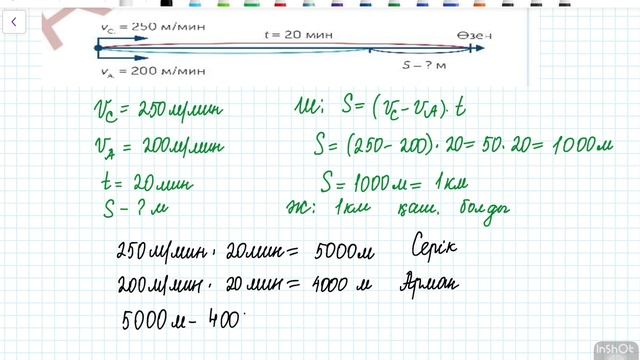 v_C = 250 м/мин
t = 20 мин
Өзен
v_A = 200 м/мин
S – ? м
V_C = 250 м/мин
V_A = 200 м/мин
t = 20 мин
S – ? м
Ш: S = (V_C – V_A) · t
S = (250 – 200) · 20 = 50 · 20 = 1000 м
S = 1000 м = 1 км
Ж: 1 км қаш. болды
250 м/мин · 20 мин = 5000 м Серік
200 м/мин · 20 мин = 4000 м Арман
5000 м – 400
InShOt